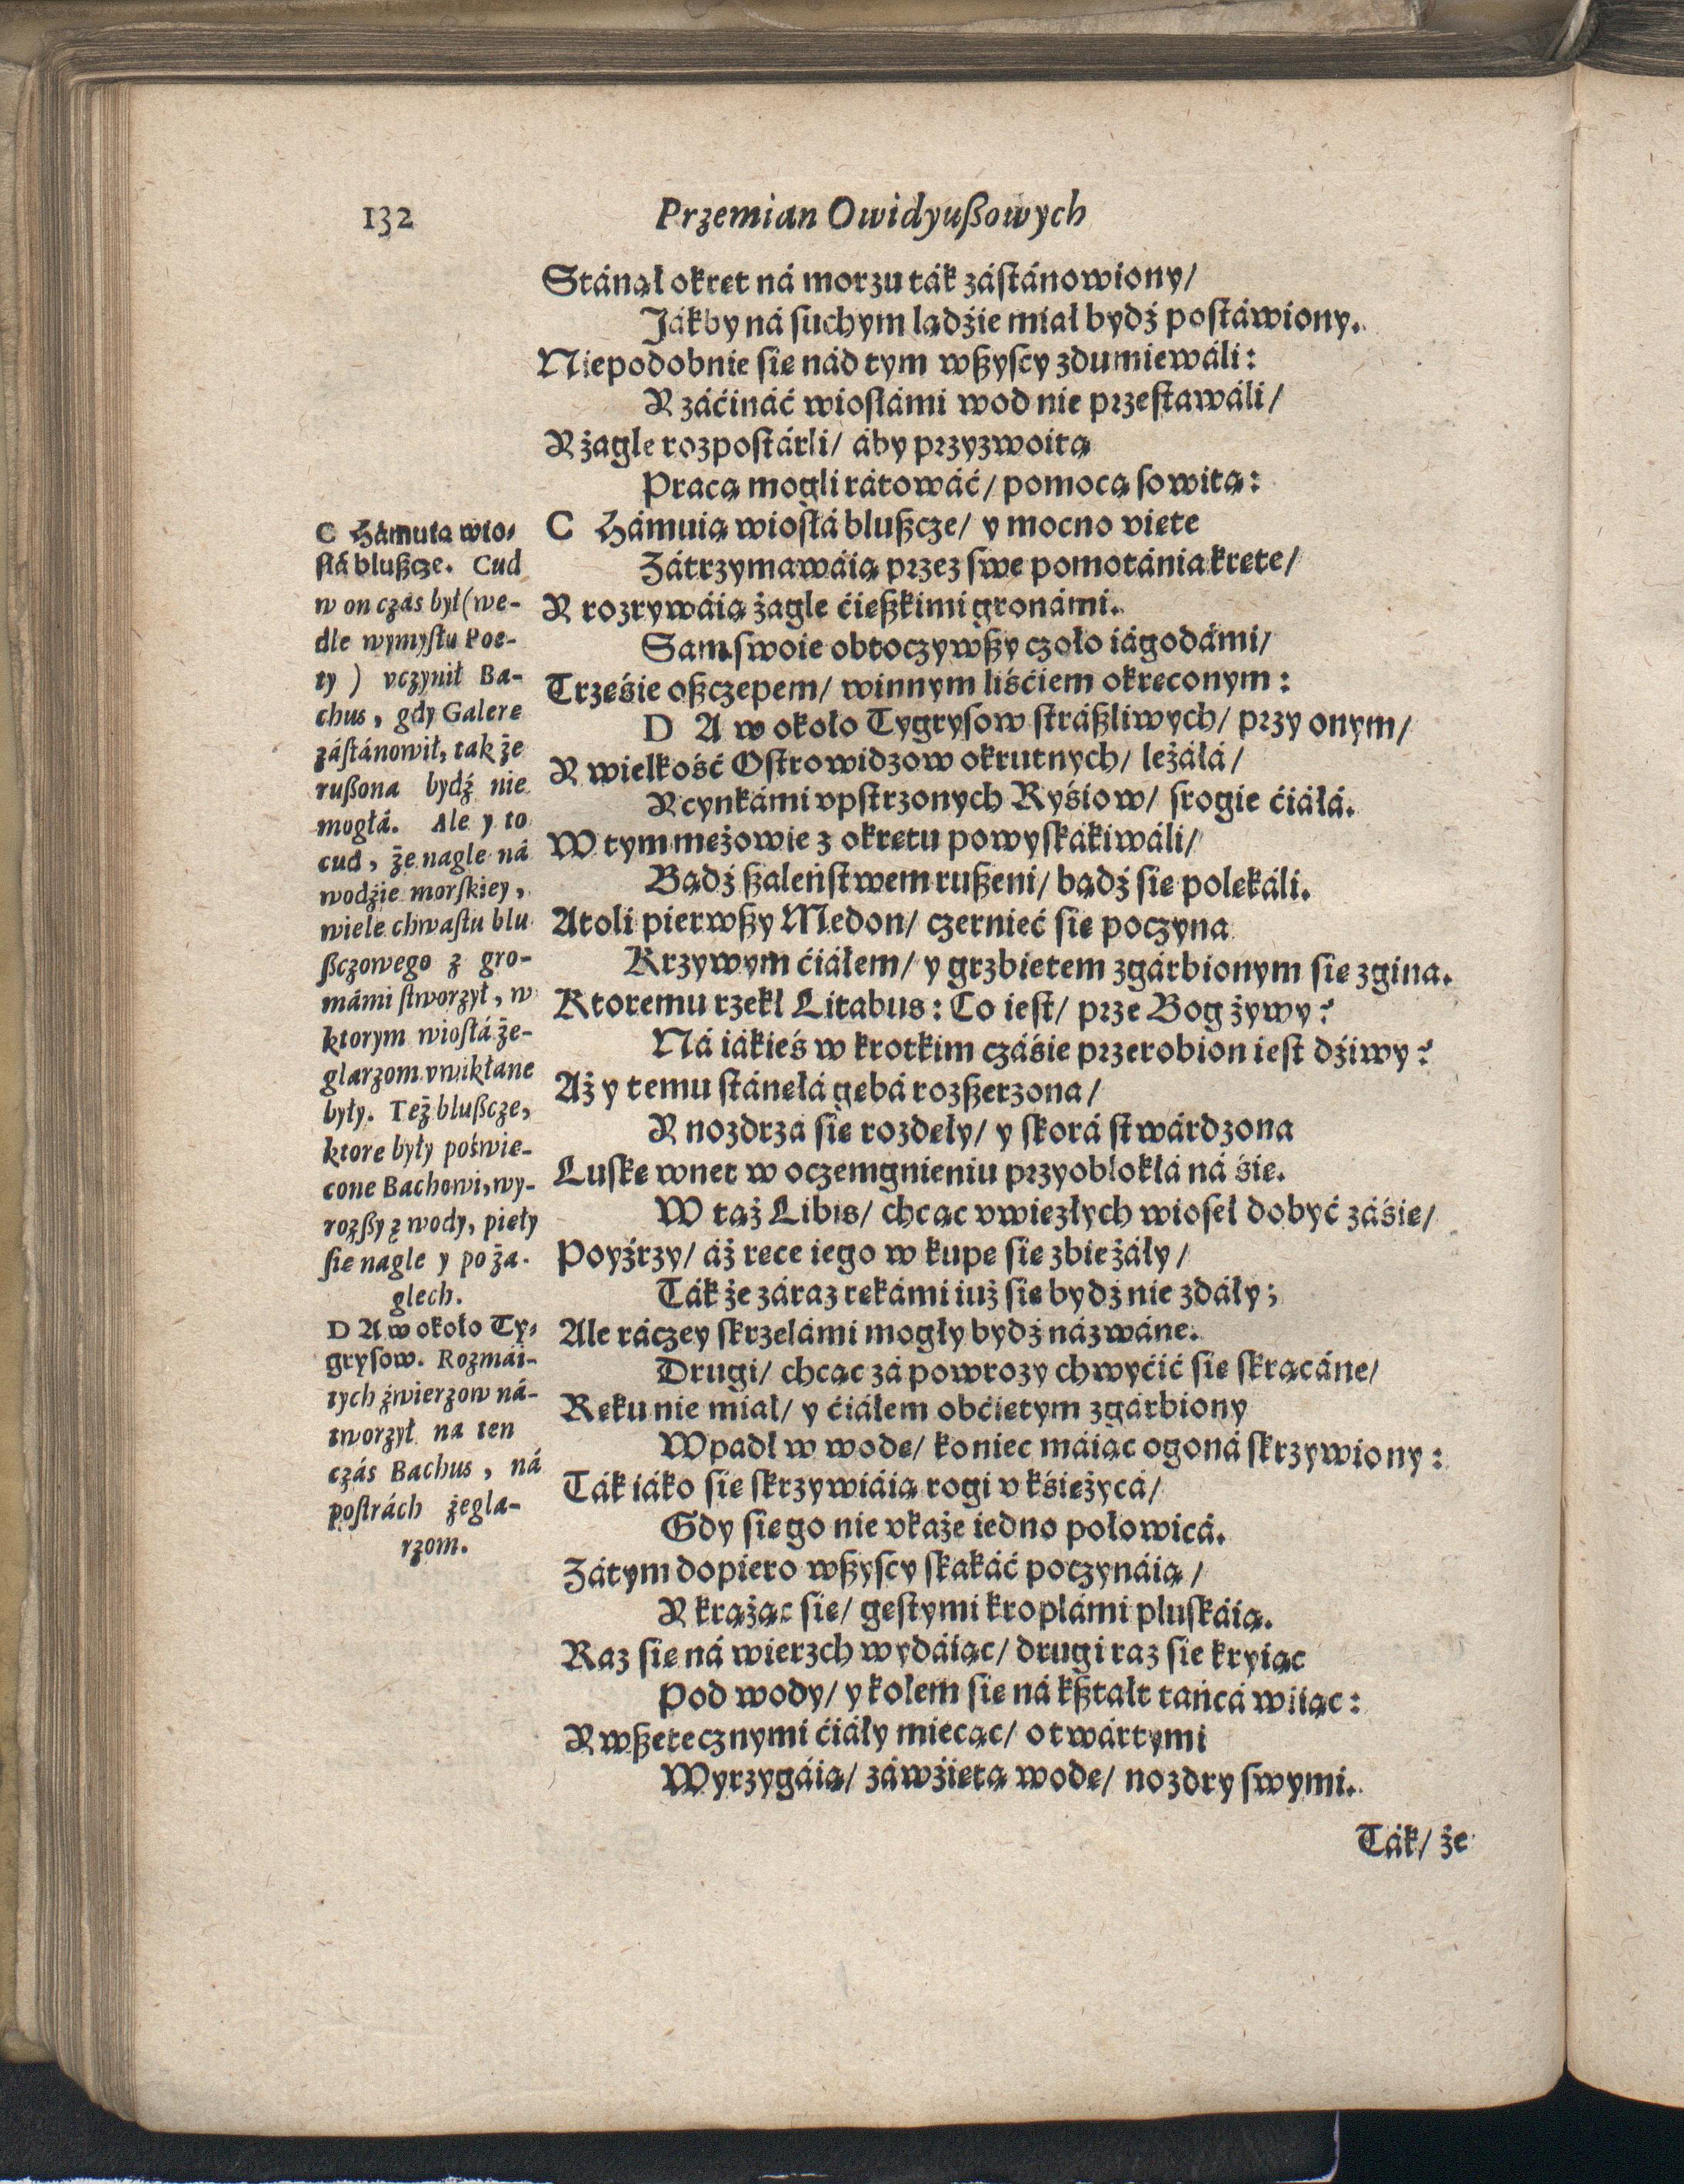 132
Przemian Owidyußowych
Stánął okret ná morzu ták zástánowiony/
Jákby ná suchym lądźie miał bydź postáwiony.
Niepodobnie sie nád tym wßyscy zdumiewáli:
Y záćináć wiosłámi wod nie przestawáli/
Y żagle rozpostárli/ áby przyzwoitą
Pracą mogli rátowáć/ pomocą sowitą:
C Hámuią wiosłá blußcze/ y mocno viete
Zátrzymawáią przez swe pomotánia krete/
Y rozrywáią żagle ćießkimi gronámi.
Sam swoie obtoczywßy czoło iágodámi/
Trześie oßczepem/ winnym liśćiem okreconym:
D A w około Tygrysow stráßliwych/ przy onym/
Y wielkość Ostrowidzow okrutnych/ leżáłá/
Y cynkámi vpstrzonych Ryśiow/ srogie ćiáłá.
W tym meżowie z okretu powyskákiwáli/
Bądź ßaleństwem rußeni/ bądź sie polekáli.
Atoli pierwßy Medon/ czernieć sie poczyna
Krzywym ćiáłem/ y grzbietem zgárbionym sie zgina.
Ktoremu rzekł Litabus: Co iest/ prze Bog żywy?
Ná iákieś w krotkim czáśie przerobion iest dźiwy?
Aż y temu stánełá gebá rozßerzona/
Y nozdrza sie rozdeły/ y skorá stwárdzona
Luske wnet w oczemgnieniu przyoblokłá ná śie.
W taż Libis/ chcąc vwiezłych wioseł dobyć záśie/
Poyźrzy/ áż rece iego w kupe sie zbieżáły/
Ták że záraz rekámi iuż sie bydź nie zdáły;
Ale ráczey skrzelámi mogły bydź názwáne.
Drugi/ chcąc zá powrozy chwyćić sie skrącáne/
Reku nie miał/ y ćiáłem obćietym zgárbiony
Wpadł w wode/ koniec máiąc ogoná skrzywiony:
Ták iáko sie skrzywiáią rogi v kśieżycá/
Gdy sie go nie vkaże iedno połowicá.
Zátym dopiero wßyscy skakáć poczynáią/
Y krążąc sie/ gestymi kroplámi pluskáią.
Raz sie ná wierzch wydáiąc/ drugi raz sie kryiąc
Pod wody/ y kołem sie ná kßtałt tańcá wiiąc:
Y wßetecznymi ćiáły miecąc/ otwártymi
Wyrzygáią/ záwźietą wode/ nozdry swymi.
Ták/ że
C Hámuią wio-
słá blußcze. Cud
w on czás był (we-
dle wymysłu Poe-
ty ) vczynił Ba-
chus, gdy Galere
zástánowił, tak że
rußona bydź nie
mogłá. Ale y to
cud, że nagle ná
wodźie morskiey,
wiele chwastu blu
ßczowego z gro-
mámi stworzył, w
ktorym wiosłá że-
glarzom vwikłane
były. Też blußcze,
ktore były poświe-
cone Bachowi, wy-
rozßy z wody, pieły
sie nagle y po ża-
glech.
D A w około Ty-
grysow. Rozmái-
tych źwierzow ná-
tworzył na ten
czás Bachus, ná
postrách żegla-
rzom.